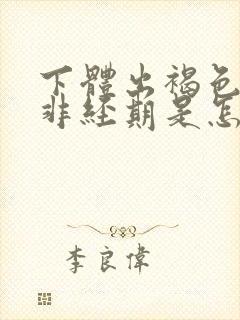 下體出褐色
非經期是怎
李良偉